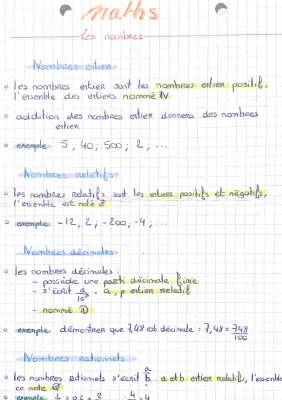 maths
les nombres
Nombres entier
les nombres entier sont les nombres entier positif,
l'ensemble des entiers nommé N
addition des nombres entier donnera des nombres
entier
exemple 5, 40, 500, 2, ...
Nombres relatifs
les nombres relatifs sont les entiers positifs et négatifs,
l'ensemble est noté Z
exemple -12, 2, -200, -4, ...
Nombres décimales
les nombres décimales :
- possède une partie décimale finie
- s'écrit a/10^p . a, p entier relatif
- nommé D
exemple démontrer que 7,48 est décimale : 7,48 = 748/100
Nombres rationnels
les nombres rationnels s'écrit a/b . a et b entier relatifs, l'ensemble
ce note Q
exemple